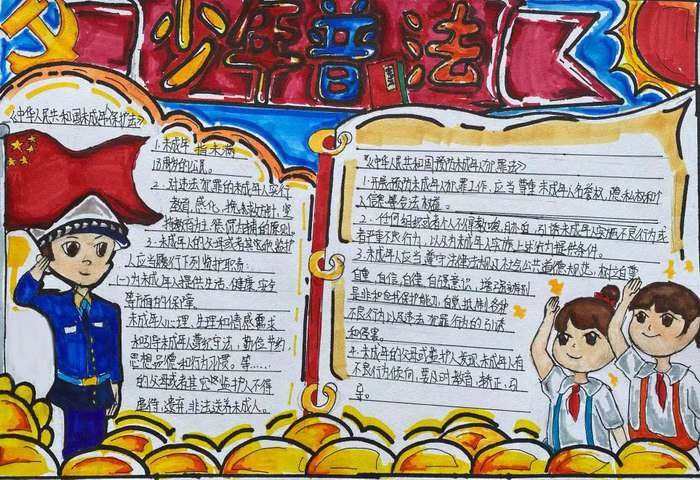 少年普法
《中华人民共和国未成年保护法》
1. 未成年指未满
18周岁的公民。
2. 对违法犯罪的未成年人实行
教育、感化、挽救方针,坚
持教育为主、惩罚为辅的原则。
3. 未成年人的父母或者其它监护
人应当履行下列监护职责:
(一)为未成年人提供生活、健康、安全
等方面的保障。
未成年人心理、生理和情感需求
和引导未成年遵纪守法,勤俭节约
思想品德和行为习惯。等……
的父母或者其它监护人不得
虐待、遗弃、非法送养未成人。
《中华人民共和国预防未成年人犯罪法》
1. 开展预防未成年人犯罪工作,应当尊重未成年人名誉权、隐私权和个
人信息等合法权益。
2. 任何组织或者个人不得教唆、胁迫、引诱未成年实施不良行为或
者严重不良行为,以及为未成年人实施上述行为提供条件。
3. 未成年人应当遵守法律法规及社会公共道德规范,树立自尊
自律、自信、自强意识,增强辨别
是非和自我保护能力,自觉抵制各种
不良行为以及违法犯罪行为的引诱
和侵害。
4. 未成年的父母或监护人发现未成年人有
不良行为倾向,要及时教育、矫正、